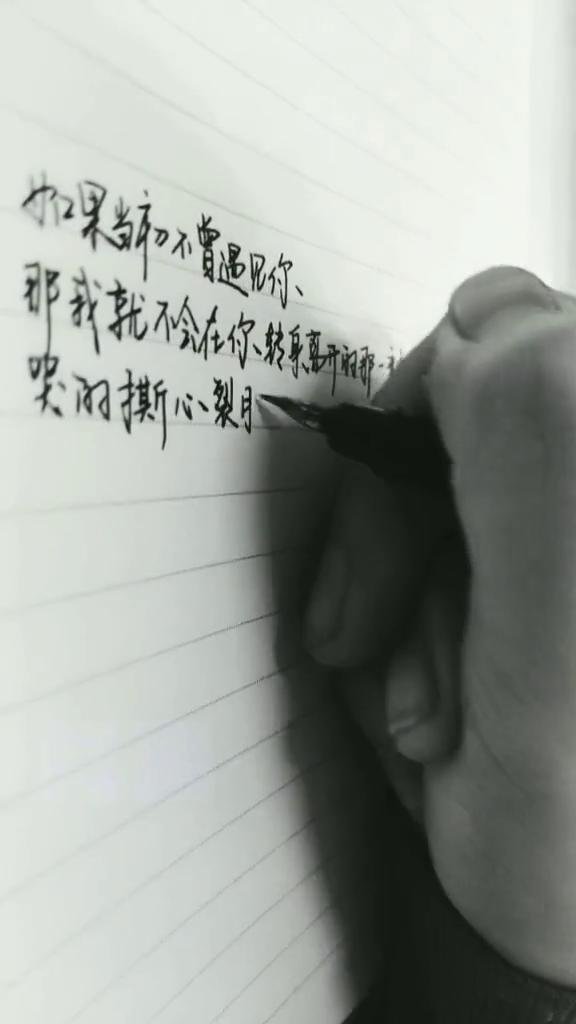 如果当初不曾遇见你、
那我就不会在你转身离开的那一
哭的撕心裂